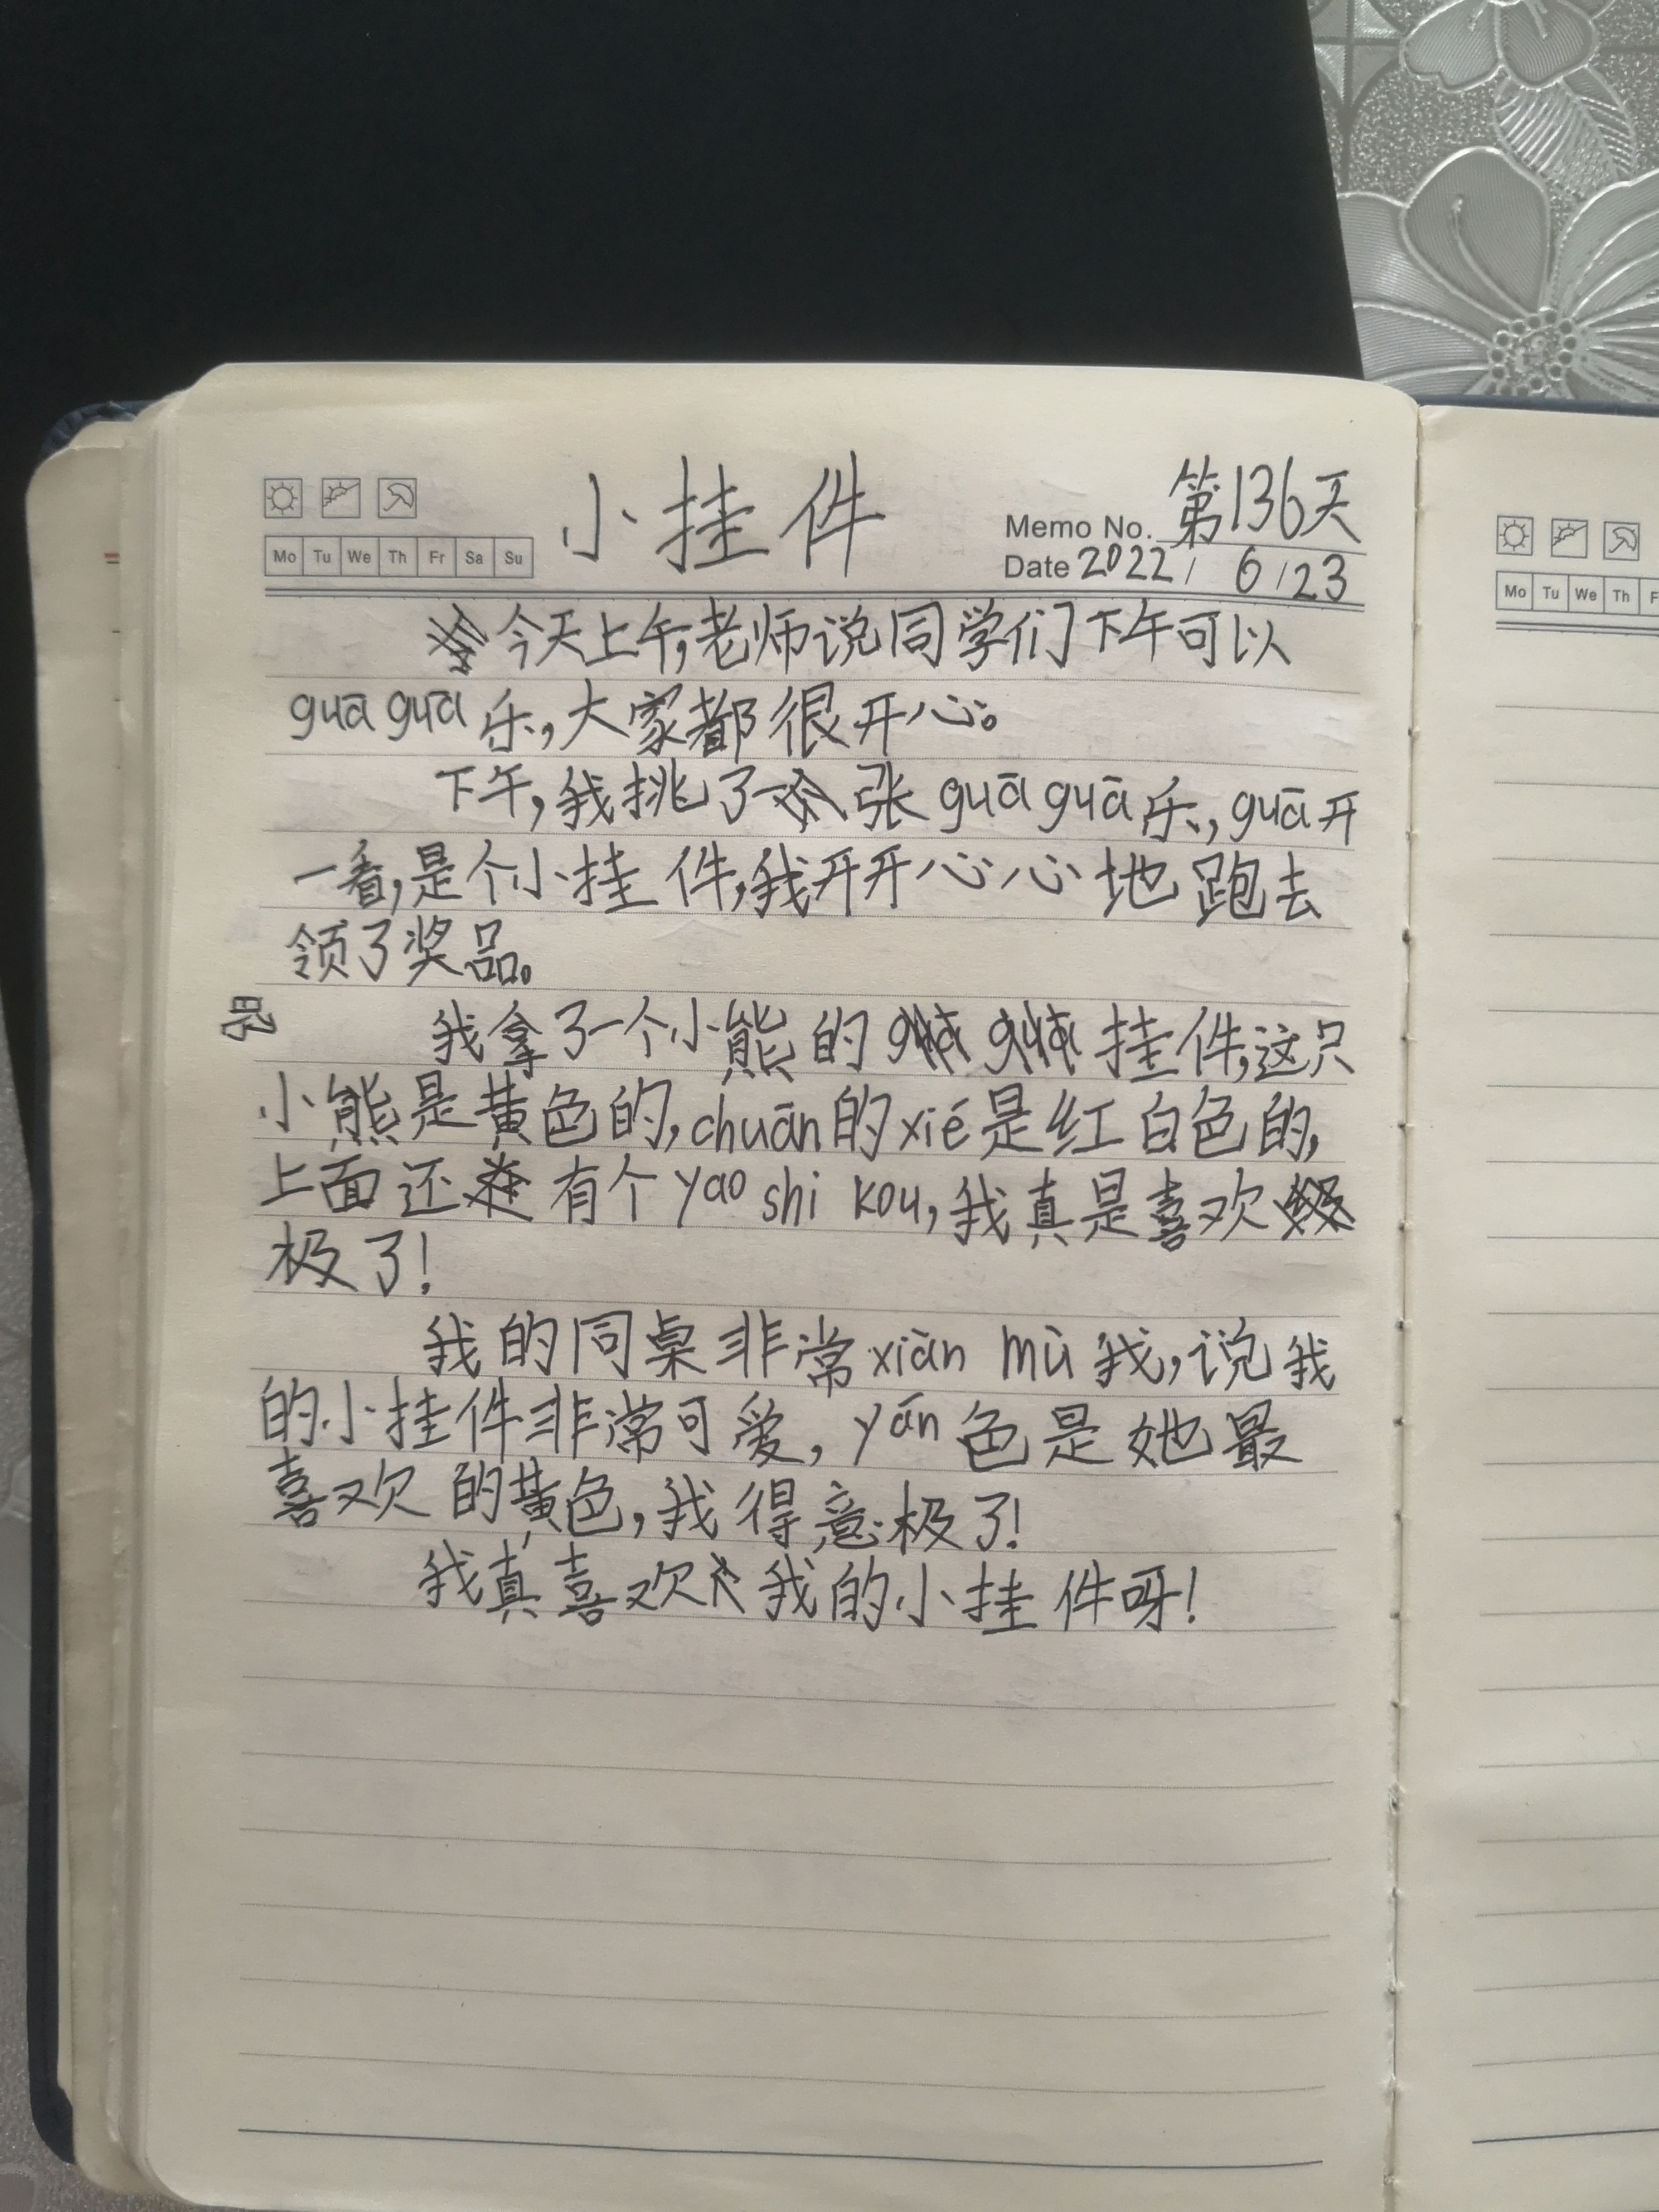 小挂件
Memo No. 第136天
Mo Tu We Th Fr Sa Su
Date 2022 / 6 / 23
今天上午,老师说同学们下午可以
guā guā 乐,大家都很开心。
下午,我挑了一张 guā guā 乐,guā开
一看,是个小挂件,我开开心心地跑去
领了奖品。
我拿了一个小熊的挂件,这只
小熊是黄色的,chuān的xié是红白色的,
上面还有个yao shi kou,我真是喜欢
极了!
我的同桌非常xiàn mù我,说我
的小挂件非常可爱,yán色是她最
喜欢的黄色,我得意极了!
我真喜欢我的小挂件呀!
Mo Tu We Th